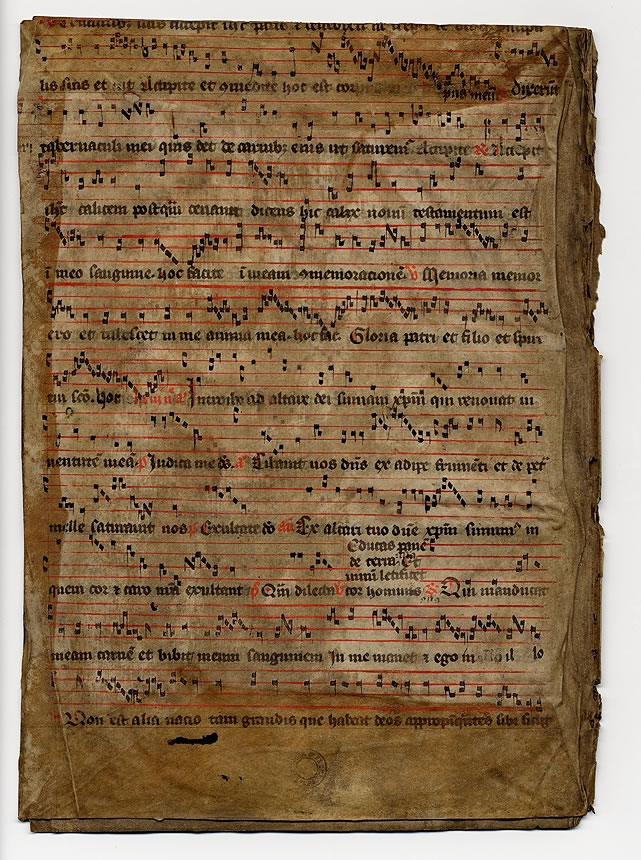 lis suis et ait Accipite et comedite hoc est corpus meum dixerunt
tabernaculi mei quis det de carnib; eius ut saturem Accipite R Accepit
calicem postqm cenauit dicens hic calix nouum testamentum est
i meo sanguine hoc facite i meam 9memoratione V Memoria memor
ero et tabescet in me anima mea hoc fac Gloria patri et filio et spiri
tui sco hoc Introibo ad altare dei sumam xpm qui renouat iu
uentute mea p Iudica me ds a Cibauit uos dns ex adipe frumeti et de pet
melle saturauit nos p Exultate do an Ex altari tuo dne xpm sumim in
Educas pane
de terra Et
uinu letificet
quem cor et caro mea exultant p Qm dilecta V cor hominis Qui manducat
meam carne et bibit meum sanguinem In me manet et ego in illo
Non est alia nacio tam grandis que habeat deos appropinqntes sibi sicut